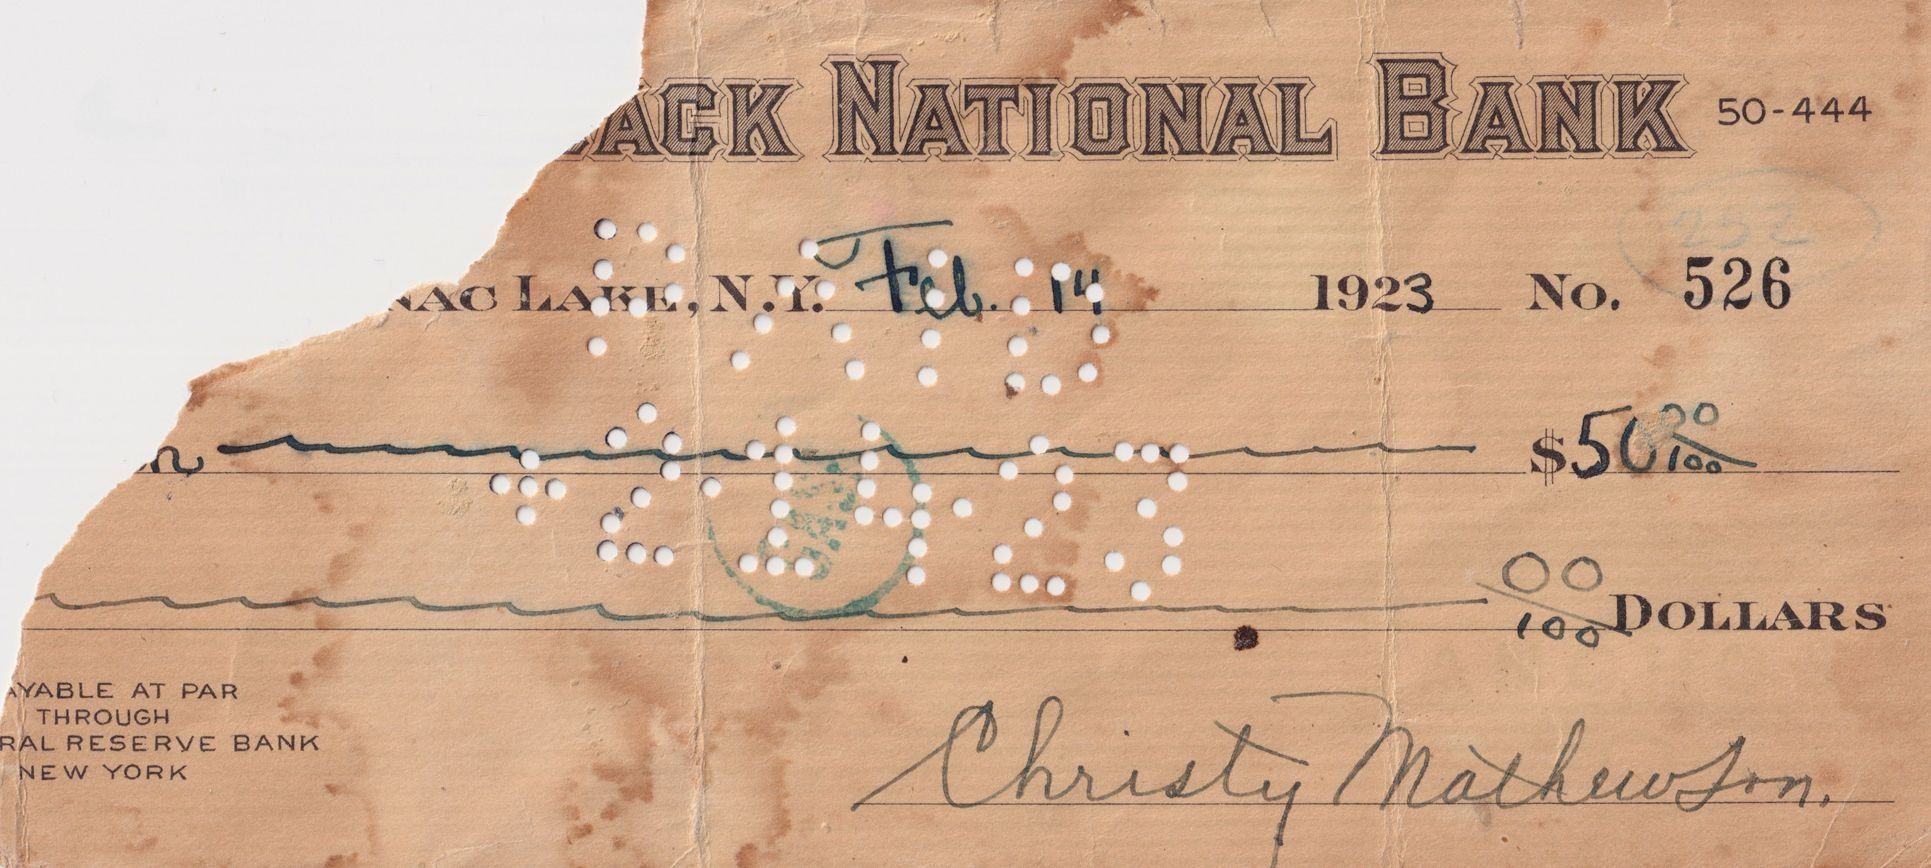 ACK NATIONAL BANK 50-444
252
NAC LAKE, N.Y. Feb. 14 1923 No. 526
PAID
n $50 00/100
2-14-23
00/100 DOLLARS
AYABLE AT PAR
THROUGH
RAL RESERVE BANK
NEW YORK
Christy Mathewson.